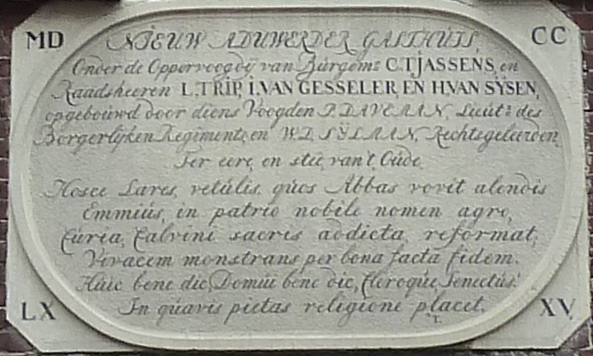 MD CC
NIEUW ADUWERDER GASTHUIS,
Onder de Oppervoogdij van Burgem: C. TJASSENS, en
Raadsheeren L. TRIP, I. VAN GESSELER, EN H. VAN SYSEN,
opgebouwd door diens Voogden P. DAVEMAN, Lieut: des
Borgerlijken Regiments, en W. I. SYLMAN, Rechtsgeleerden
Ter eere, en stee van't Oude
Hosce Lares, vetulis, quos Abbas vovit alendis
Emmius, in patrio nobile nomen agro,
Curia, Calvini sacris addicta, reformat,
Vivacem monstrans per bona facta fidem.
Huic bene dic Domui bene dic, Cleroque, Senectus!
In quavis pietas religione placet.
T.
LX XV